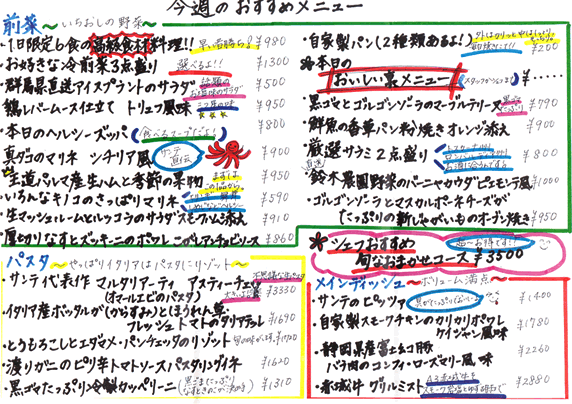 今週のおすすめメニュー
前菜 ～いちおしの野菜～
・1日限定6食の高級食材料理!! 早い者勝ち! ¥980
・お好きな冷前菜3点盛り 選べるよ!! ¥1300
・群馬県直送アイスプラントのサラダ ¥500
・鶏レバームース仕立て トリュフ風味 ¥950
・本日のヘルシーズッパ 食べるスープだよ! ¥900
真ダコのマリネ シチリア風 サンテ直伝 ¥900
・王道パルマ産生ハムと季節の果物 ¥950
・いろんなキノコのさっぱりマリネ ¥590
・生マッシュルームとルッコラのサラダ スモークハム添え ¥910
・厚切りなすとズッキーニのポワレ こがしアンチョビソース ¥860
・自家製パン(2種類あるよ!) ¥200
本日の
おいしい裏メニュー ¥‥‥
・黒ゴマとゴルゴンゾーラのマーブルテリーヌ ¥790
・鮮魚の香草パン粉焼き オレンジ添え ¥900
・厳選サラミ2点盛り ¥800
・鈴木農園野菜のバーニャカウダ ピエモンテ風 ¥1000
・ゴルゴンゾーラとマスカルポーネチーズが
たっぷりの新じゃがいものオーブン焼き ¥950
シェフおすすめ
旬なおまかせコース ¥3500
パスタ ～やっぱりイタリアはパスタにリゾット～
・サンテ代表作 マルタリアーティ アスティーチェ
(オマールエビのパスタ) ¥3330
・イタリア産ボッタルガ(からすみ)とほうれん草
フレッシュトマトのタリアテッレ ¥1690
・とうもろこしとエダマメ・パンチェッタのリゾット ¥1420
・渡りガニのピリ辛トマトソースパスタ リングイネ ¥1620
・黒ゴマたっぷり冷製カッペリーニ ¥1310
メインディッシュ ～ボリューム満点～
・サンテのピッツァ ¥1400
・自家製スモークチキンのカリカリポワレ
ケイジャン風味 ¥1780
・静岡県産富士ミルク豚
バラ肉のコンフィ・ローズマリー風味 ¥2260
・赤城牛 グリルミスト ¥2880